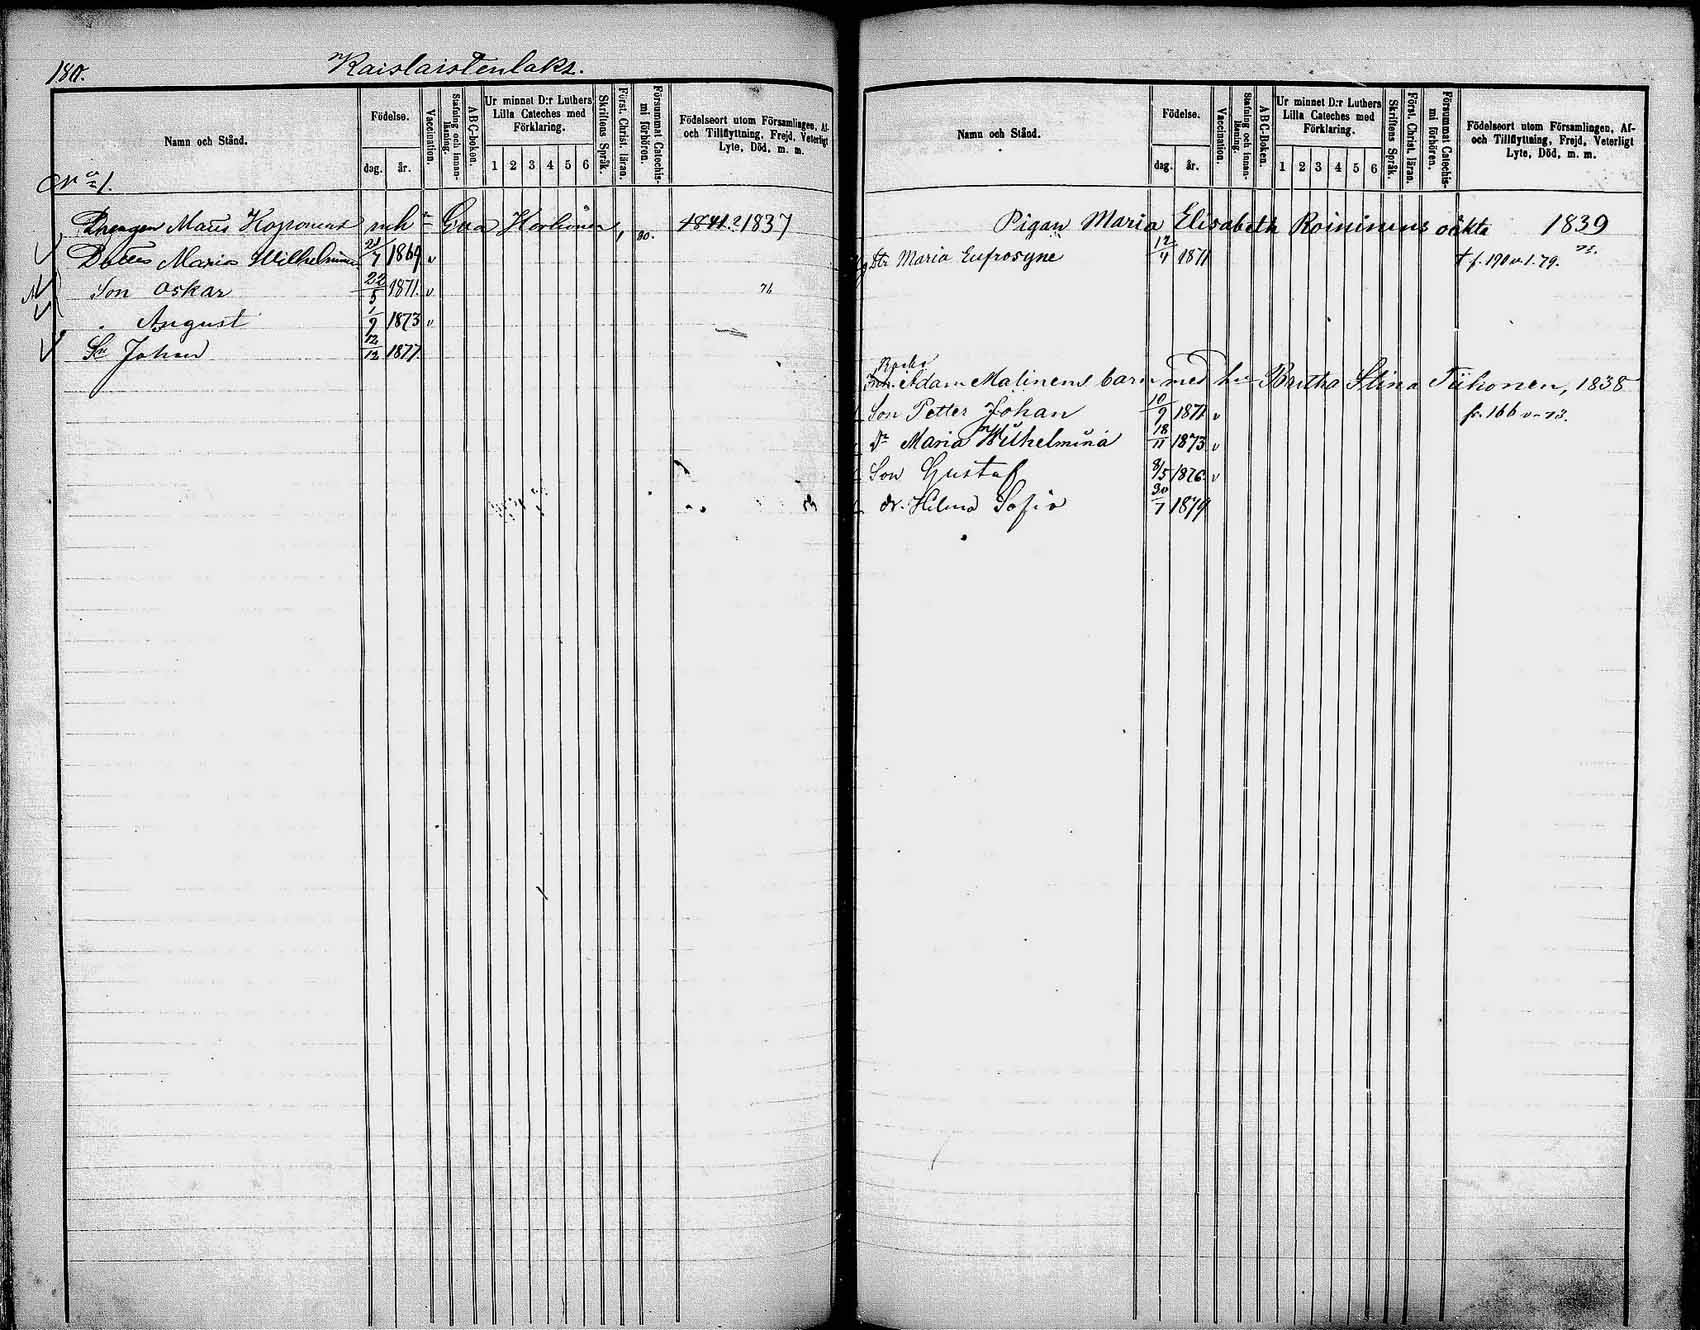 180.
Kaislaistenlaks.
Namn och Stånd.
Födelse.
dag.
år.
Vaccination.
Stafning och innan-läsning.
A B C-boken.
Ur minnet D:r Luthers
Lilla Cateches med
Förklaring.
1 2 3 4 5 6
Skriftens Språk.
Först. Christ. läran.
Försummat Catechis-
mi förhören.
Födelseort utom Församlingen, Af-
och Tillflyttning, Frejd, Veterligt
Lyte, Död, m. m.
No 1.
Drengen Mats Koponens och Eva 1841? 1837
Maria Wilhelmina 21/7 1869 v
Son Oskar 22/5 1871 v 76
August 1/9 1873 v
Sn Johan 12/12 1877
Namn och Stånd.
Födelse.
dag.
år.
Vaccination.
Stafning och innan-läsning.
A B C-boken.
Ur minnet D:r Luthers
Lilla Cateches med
Förklaring.
1 2 3 4 5 6
Skriftens Språk.
Först. Christ. läran.
Försummat Catechis-
mi förhören.
Födelseort utom Församlingen, Af-
och Tillflyttning, Frejd, Veterligt
Lyte, Död, m. m.
Pigan Maria Elisabeth Roininens oäkta 1839
Dtr Maria Eufrosyne 12/4 1871 f. 190 v. 1.79.
Adam Malinens barn med h. Britha Stina Tiihonen, 1838
Son Petter Johan 10/9 1871 v fr. 166 v. 73.
Dr Maria Wilhelmina 18/11 1873 v
Son Gustaf 8/5 1876 v
dr. Hilma Sofia 30/7 1879